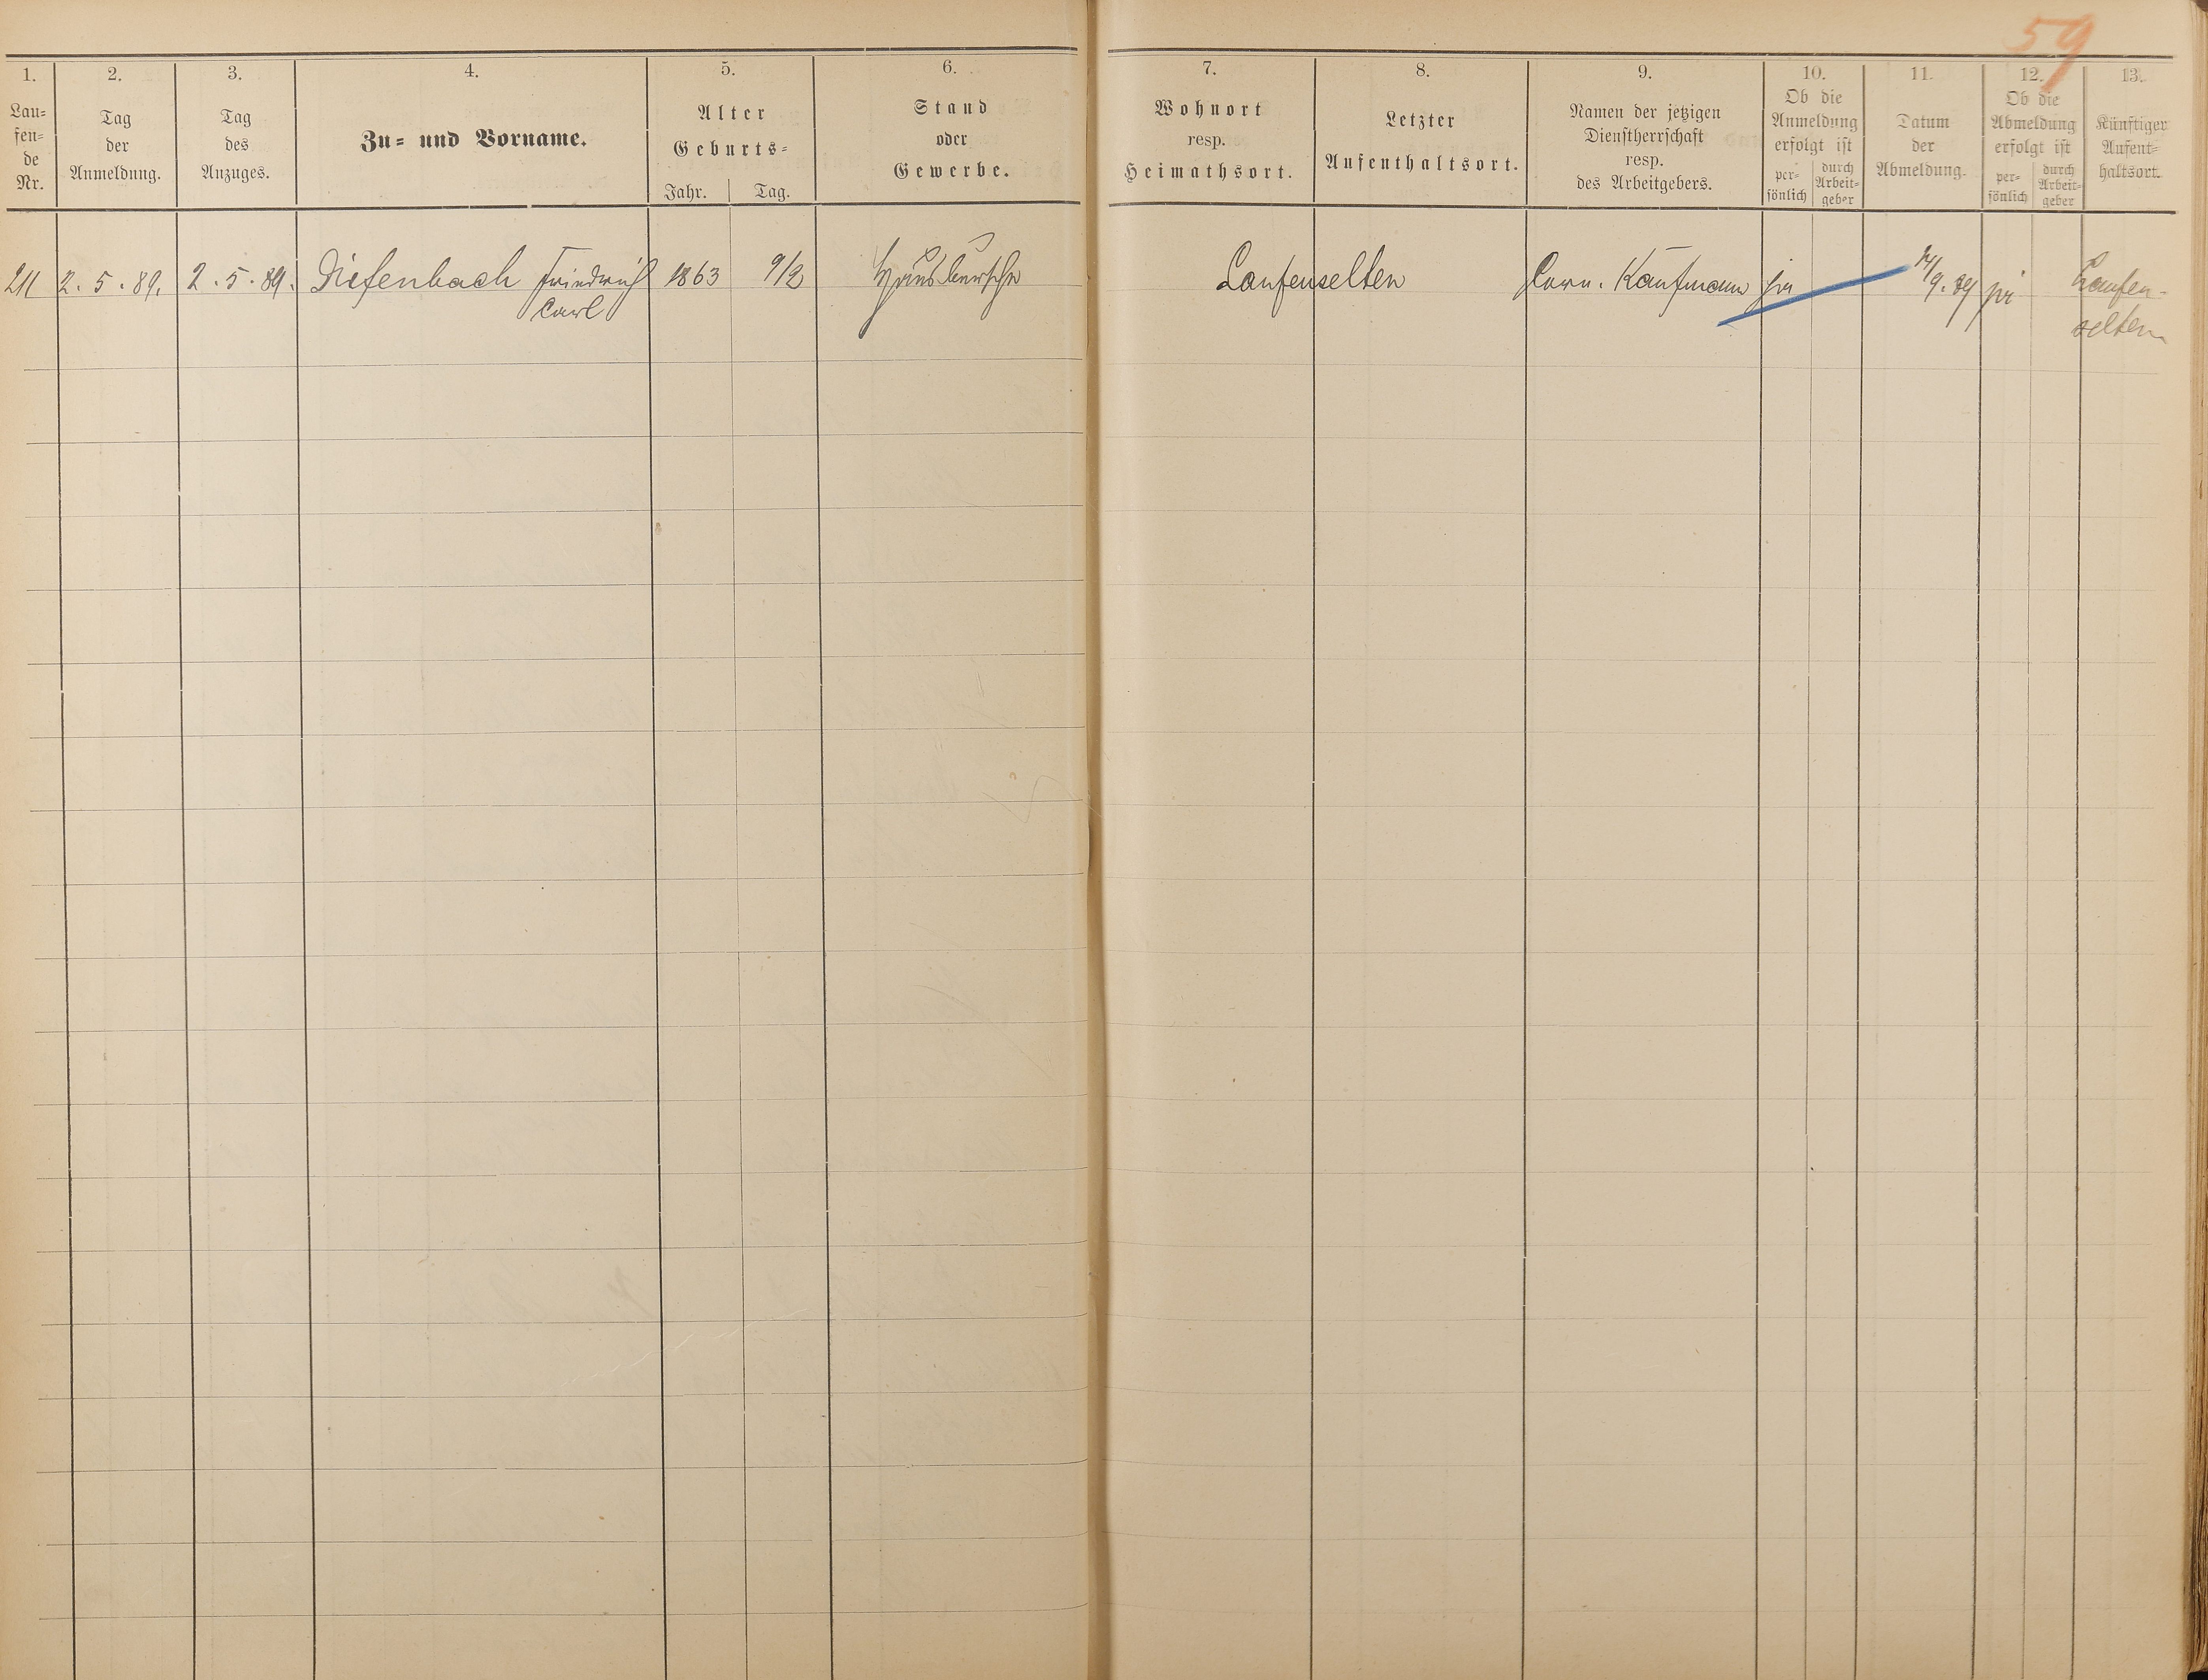 59
1.
2.
3.
4.
5.
6.
7.
8.
9.
10.
11.
12.
13.
Lau=
fen=
de
Nr.
Tag
der
Anmeldung.
Tag
des
Anzuges.
Zu= und Vorname.
Alter
Geburts=
Jahr.
Tag.
Stand
oder
Gewerbe.
Wohnort
resp.
Heimathsort.
Letzter
Aufenthaltsort.
Namen der jetzigen
Dienstherrschaft
resp.
des Arbeitgebers.
Ob die
Anmeldung
erfolgt ist
per=
sönlich
durch
Arbeit=
geber
Datum
der
Abmeldung.
Ob die
Abmeldung
erfolgt ist
per=
sönlich
durch
Arbeit=
geber
Künftiger
Aufent=
haltsort.
211 2. 5. 89. 2. 5. 89. Diefenbach Friedrich 1863 9/2 Hausbursche Laufenselten Kaufmann ja 9. 89 ja Laufen-
Carl selten